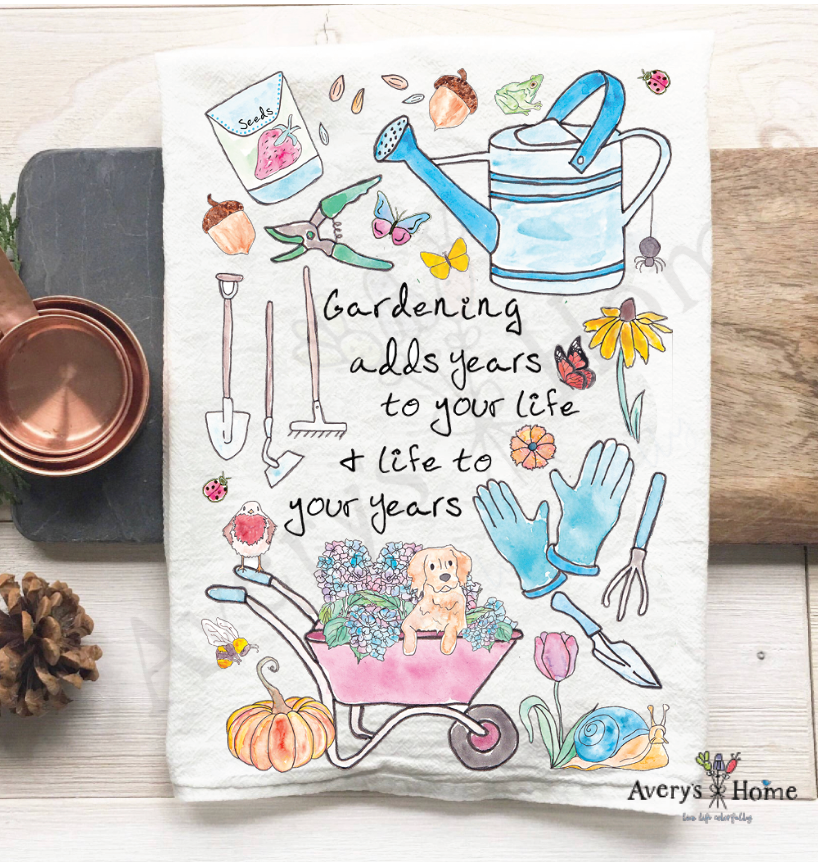 Seeds
Gardening
adds years
to your life
+ life to
your years
Avery's Home
live life colorfully